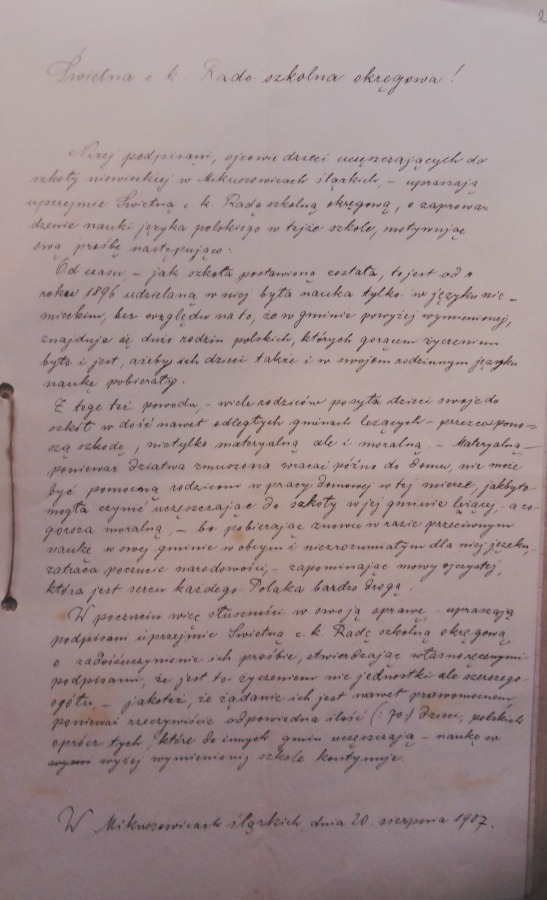 2
Świetna c. k. Rado szkolna okręgowa!
Niżej podpisani, ojcowie dzieci uczęszczających do
szkoły niemieckiej w Mikuszowicach śląskich, – upraszają
uprzejmie Świetną c. k. Radę szkolną okręgową, o zaprowa-
dzenie nauki języka polskiego w tejże szkole, motywując
swą prośbę następująco:
Od czasu – jak szkoła postawioną została, to jest od
roku 1896 udzielaną w niej była nauka tylko w języku nie-
mieckim, bez względu na to, że w gminie powyżej wymienionej,
znajduje się dużo rodzin polskich, których gorącem życzeniem
było i jest, ażeby ich dzieci także i w swojem rodzinnym języku
naukę pobierały.
Z tego też powodu, – wiele rodziców posyła dzieci swoje do
szkół w dość nawet odległych gminach leżących – przez co pono-
szą szkodę, nietylko materyalną ale i moralną. – Materyalną –
ponieważ dziatwa zmuszona wracać późno do domu, nie może
być pomocną rodzicom w pracy domowej w tej mierze, jakby to
mogła czynić uczęszczając do szkoły w jej gminie leżącej, – a co
gorsza moralną, – bo pobierając znowu w razie przeciwnym
naukę w swej gminie w obcym i niezrozumiałym dla niej języku,
zatraca poczucie narodowości, – zapominając mowy ojczystej,
która jest sercu każdego Polaka bardzo drogą.
W poczuciu więc słuszności w swoją sprawę, – upraszają
podpisani uprzejmie Świetną c. k. Radę szkolną okręgową
o zadośćuczynienie ich prośbie, stwierdzając własnoręcznymi
podpisami, że jest to życzeniem nie jednostki ale szerszego
ogółu, – jakoteż, że żądanie ich jest nawet prawomocnem,
ponieważ rzeczywiście odpowiednia ilość (: 70 :) dzieci, polskich
oprócz tych, które do innych gmin uczęszczają – naukę w
wyżej wymienionej szkole kontynuje.
W Mikuszowicach śląskich, dnia 20. sierpnia 1907.